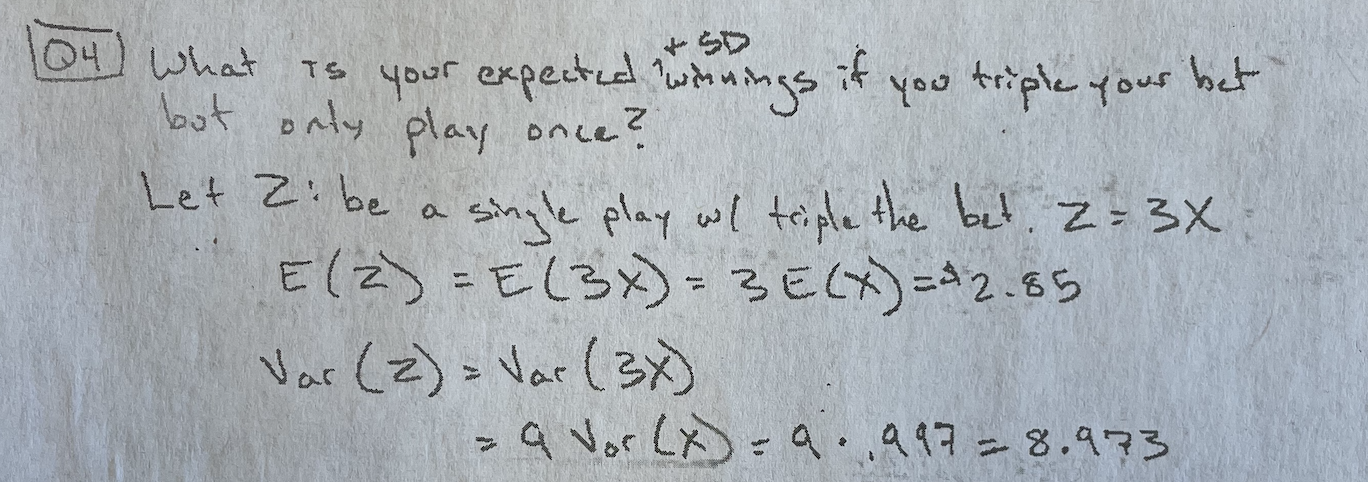 Q4 What is your expected + SD winnings if you triple your bet
but only play once?
Let Z: be a single play w/ triple the bet. Z = 3X
E(Z) = E(3X) = 3E(X) = $2.85
Var(Z) = Var(3X)
= 9 Var(X) = 9 · .997 = 8.973